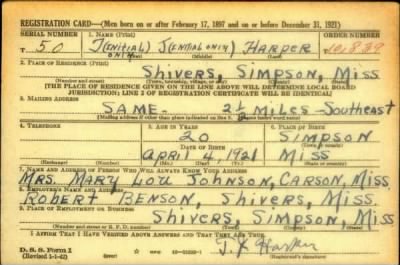 REGISTRATION CARD—(Men born on or after February 17, 1897 and on or before December 31, 1921)
SERIAL NUMBER 1. NAME (Print) ORDER NUMBER
T 50 J(INITIAL ONLY) J(ENTIAL ONLY) HARPER
(First) (Middle) (Last)
2. PLACE OF RESIDENCE (Print)
SHIVERS, SIMPSON, MISS
(Number and street) (Town, township, village, or city) (County) (State)
[THE PLACE OF RESIDENCE GIVEN ON THE LINE ABOVE WILL DETERMINE LOCAL BOARD
JURISDICTION; LINE 2 OF REGISTRATION CERTIFICATE WILL BE IDENTICAL]
3. MAILING ADDRESS
SAME - 2½ MILES - SOUTHEAST
[Mailing address if other than place indicated on line 2. If same insert word same]
4. TELEPHONE 5. AGE IN YEARS 6. PLACE OF BIRTH
20 SIMPSON
DATE OF BIRTH (Town or county)
APRIL 4, 1921 MISS
(Exchange) (Number) (Mo.) (Day) (Yr.) (State or country)
7. NAME AND ADDRESS OF PERSON WHO WILL ALWAYS KNOW YOUR ADDRESS
MRS. MARY LOU JOHNSON, CARSON, MISS.
8. EMPLOYER'S NAME AND ADDRESS
ROBERT BENSON, SHIVERS, MISS.
9. PLACE OF EMPLOYMENT OR BUSINESS
SHIVERS, SIMPSON, MISS
(Number and street or R. F. D. number) (Town) (County) (State)
I AFFIRM THAT I HAVE VERIFIED ABOVE ANSWERS AND THAT THEY ARE TRUE.
D. S. S. Form 1
(Revised 1-1-42) J. J. Harper
(Registrant's signature)